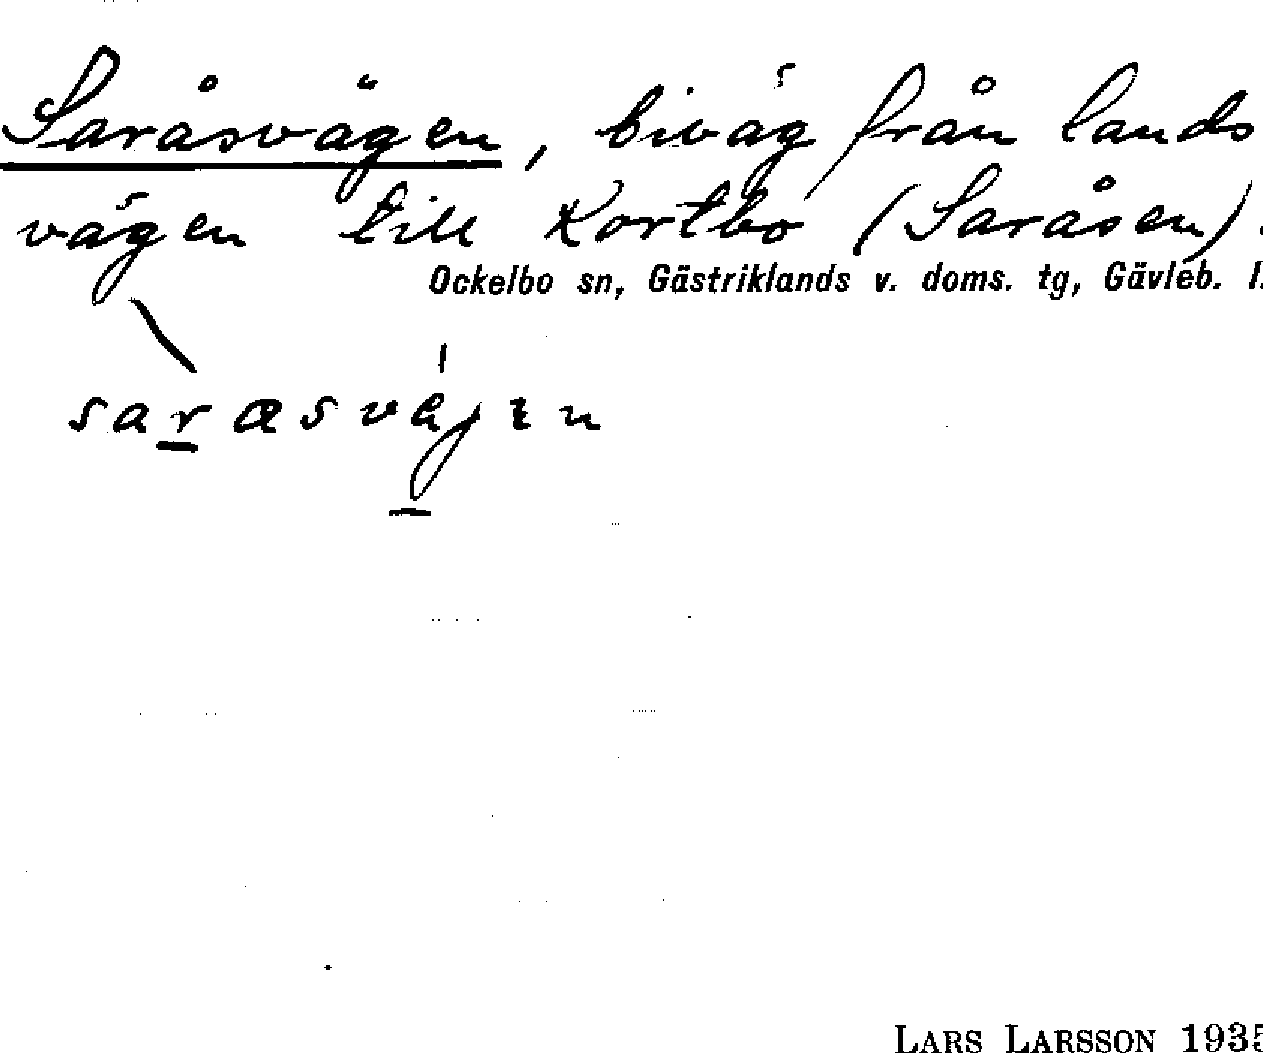 Saråsvägen, biväg från lands
vägen till Kortbo (Saråsen).
Ockelbo sn, Gästriklands v. doms. tg, Gävleb. l.
LARS LARSSON 1935